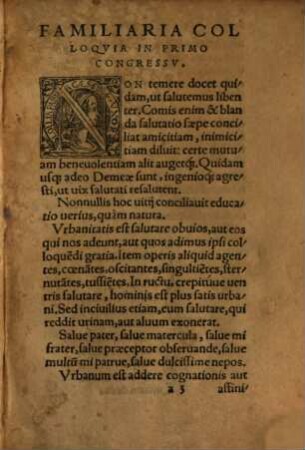 FAMILIARIA COL
LOQVIA IN PRIMO
CONGRESSV.
NON temere docet qui
dam, ut salutemus liben
ter. Comis enim & blan
da salutatio sæpe conci
liat amicitiam, inimici
tiam diluit: certe mutu
am beneuolentiam alit augetq́;. Quidam
usq; adeo Demeæ sunt, ingenioq́; agre
sti, ut uix salutati resalutent.
Nonnullis hoc uitij conciliauit educa
tio uerius, quàm natura.
Vrbanitatis est salutare obuios, aut eos
qui nos adeunt, aut quos adimus ipsi col
loquēdi gratia. Item operis aliquid agen
tes, cœnātes, oscitantes, singultiētes, ster
nutātes, tussiētes. In ructu, crepituue uen
tris salutare, hominis est plus satis urba
ni. Sed inciuilius etiam, eum salutare, qui
reddit urinam, aut aluum exonerat.
Salue pater, salue matercula, salue mi
frater, salue præceptor obseruande, salue
multū mi patrue, salue dulcissime nepos.
Vrbanum est addere cognationis aut
a 3 affini-